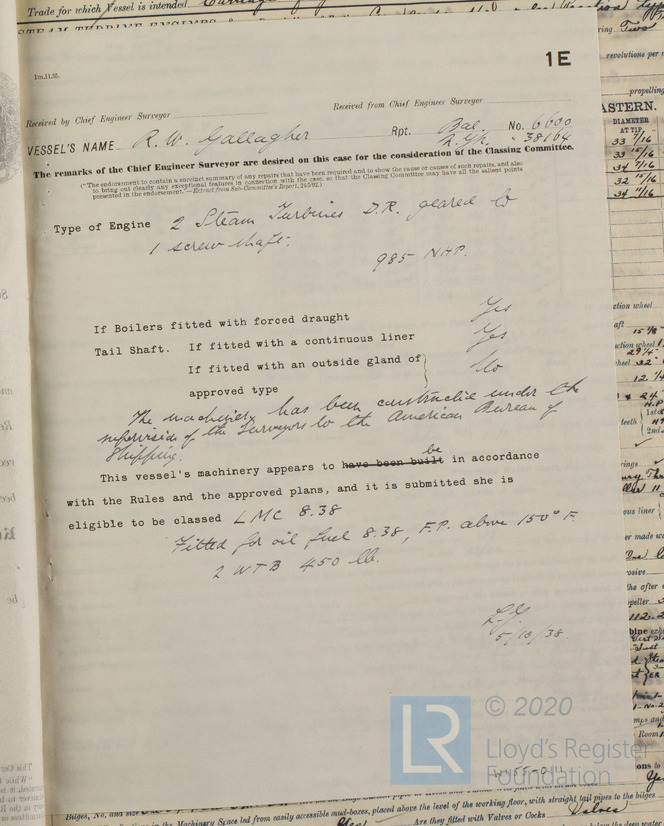 Trade for which Vessel is intended.
STEAM TURBINE ENGINES
1E
1m.11.35.
Received by Chief Engineer Surveyor
Received from Chief Engineer Surveyor
VESSEL'S NAME R. W. Gallagher Rpt. Bal. No. 6000
N.Yk. " 38164
The remarks of the Chief Engineer Surveyor are desired on this case for the consideration of the Classing Committee.
("The endorsement to contain a succinct summary of any repairs that have been required and to show the cause or causes of such repairs, and also
to bring out clearly any exceptional features in connection with the case, so that the Classing Committee may have all the salient points
presented in the endorsement."—Extract from Sub-Committee's Report, 20/5/92.)
Type of Engine 2 Steam Turbines D.R. geared to
1 screw shaft.
985 NHP.
If Boilers fitted with forced draught Yes
Tail Shaft. If fitted with a continuous liner Yes
If fitted with an outside gland of
approved type No
The machinery has been constructed under the
supervision of the Surveyors to the American Bureau of
Shipping.
This vessel's machinery appears to have been built be in accordance
with the Rules and the approved plans, and it is submitted she is
eligible to be classed LMC 8.38
Fitted for oil fuel 8.38, F.P. above 150° F.
2 WTB 450 lb.
5/10/38.
LR
© 2020
Lloyd's Register
Foundation
revolutions per
propelling
ASTERN.
DIAMETER
AT TIP.
Bilges, No. and size
in the Machinery Space led from easily accessible mud-boxes, placed above the level of the working floor, with straight tail pipes to the bilges
Are they fitted with Valves or Cocks Valves